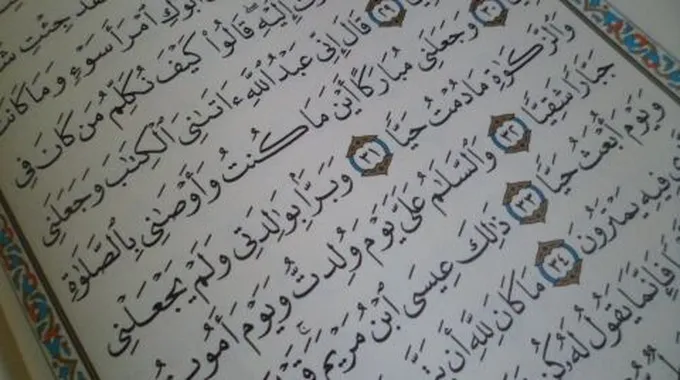 جِئْتِ
أَبُوكِ ٱمْرَأَ سَوْءٍ وَمَا كَانَتْ
إِلَيْهِ ۖ قَالُوا۟ كَيْفَ نُكَلِّمُ مَن كَانَ فِى
٢٩ قَالَ إِنِّى عَبْدُ ٱللَّهِ ءَاتَىٰنِىَ ٱلْكِتَٰبَ وَجَعَلَنِى
وَجَعَلَنِى مُبَارَكًا أَيْنَ مَا كُنتُ وَأَوْصَٰنِى بِٱلصَّلَوٰةِ
وَٱلزَّكَوٰةِ مَا دُمْتُ حَيًّا ٣١ وَبَرًّۢا بِوَٰلِدَتِى وَلَمْ يَجْعَلْنِى
جَبَّارًا شَقِيًّا ٣٢ وَٱلسَّلَٰمُ عَلَىَّ يَوْمَ وُلِدتُّ وَيَوْمَ أَمُوتُ
وَيَوْمَ أُبْعَثُ حَيًّا ٣٣ ذَٰلِكَ عِيسَى ٱبْنُ مَرْيَمَ ۚ
فِيهِ يَمْتَرُونَ ٣٤ مَا كَانَ لِلَّهِ أَن
فَإِنَّمَا يَقُولُ لَهُۥ كُن